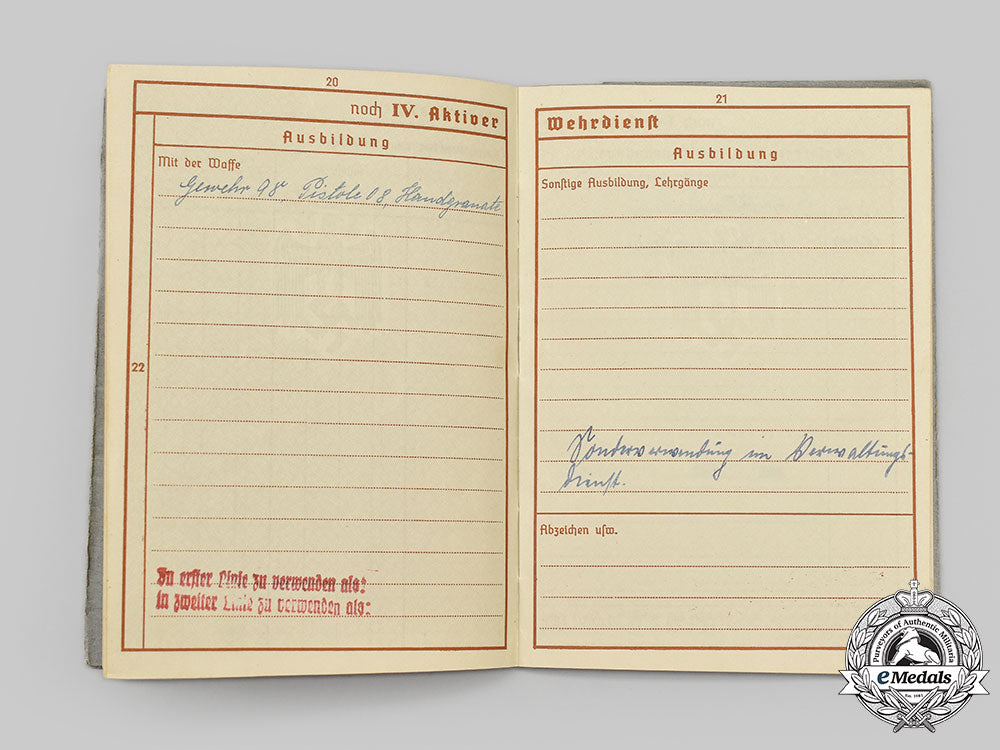 20
noch IV. Aktiver
Ausbildung
Mit der Waffe
Gewehr 98, Pistole 08, Handgranate
22
In erster Linie zu verwenden als:
in zweiter Linie zu verwenden als:
21
Wehrdienst
Ausbildung
Sonstige Ausbildung, Lehrgänge
Sonderverwendung im Verwaltungs-
dienst.
Abzeichen usw.
Purveyors of Authentic Militaria
eMedals